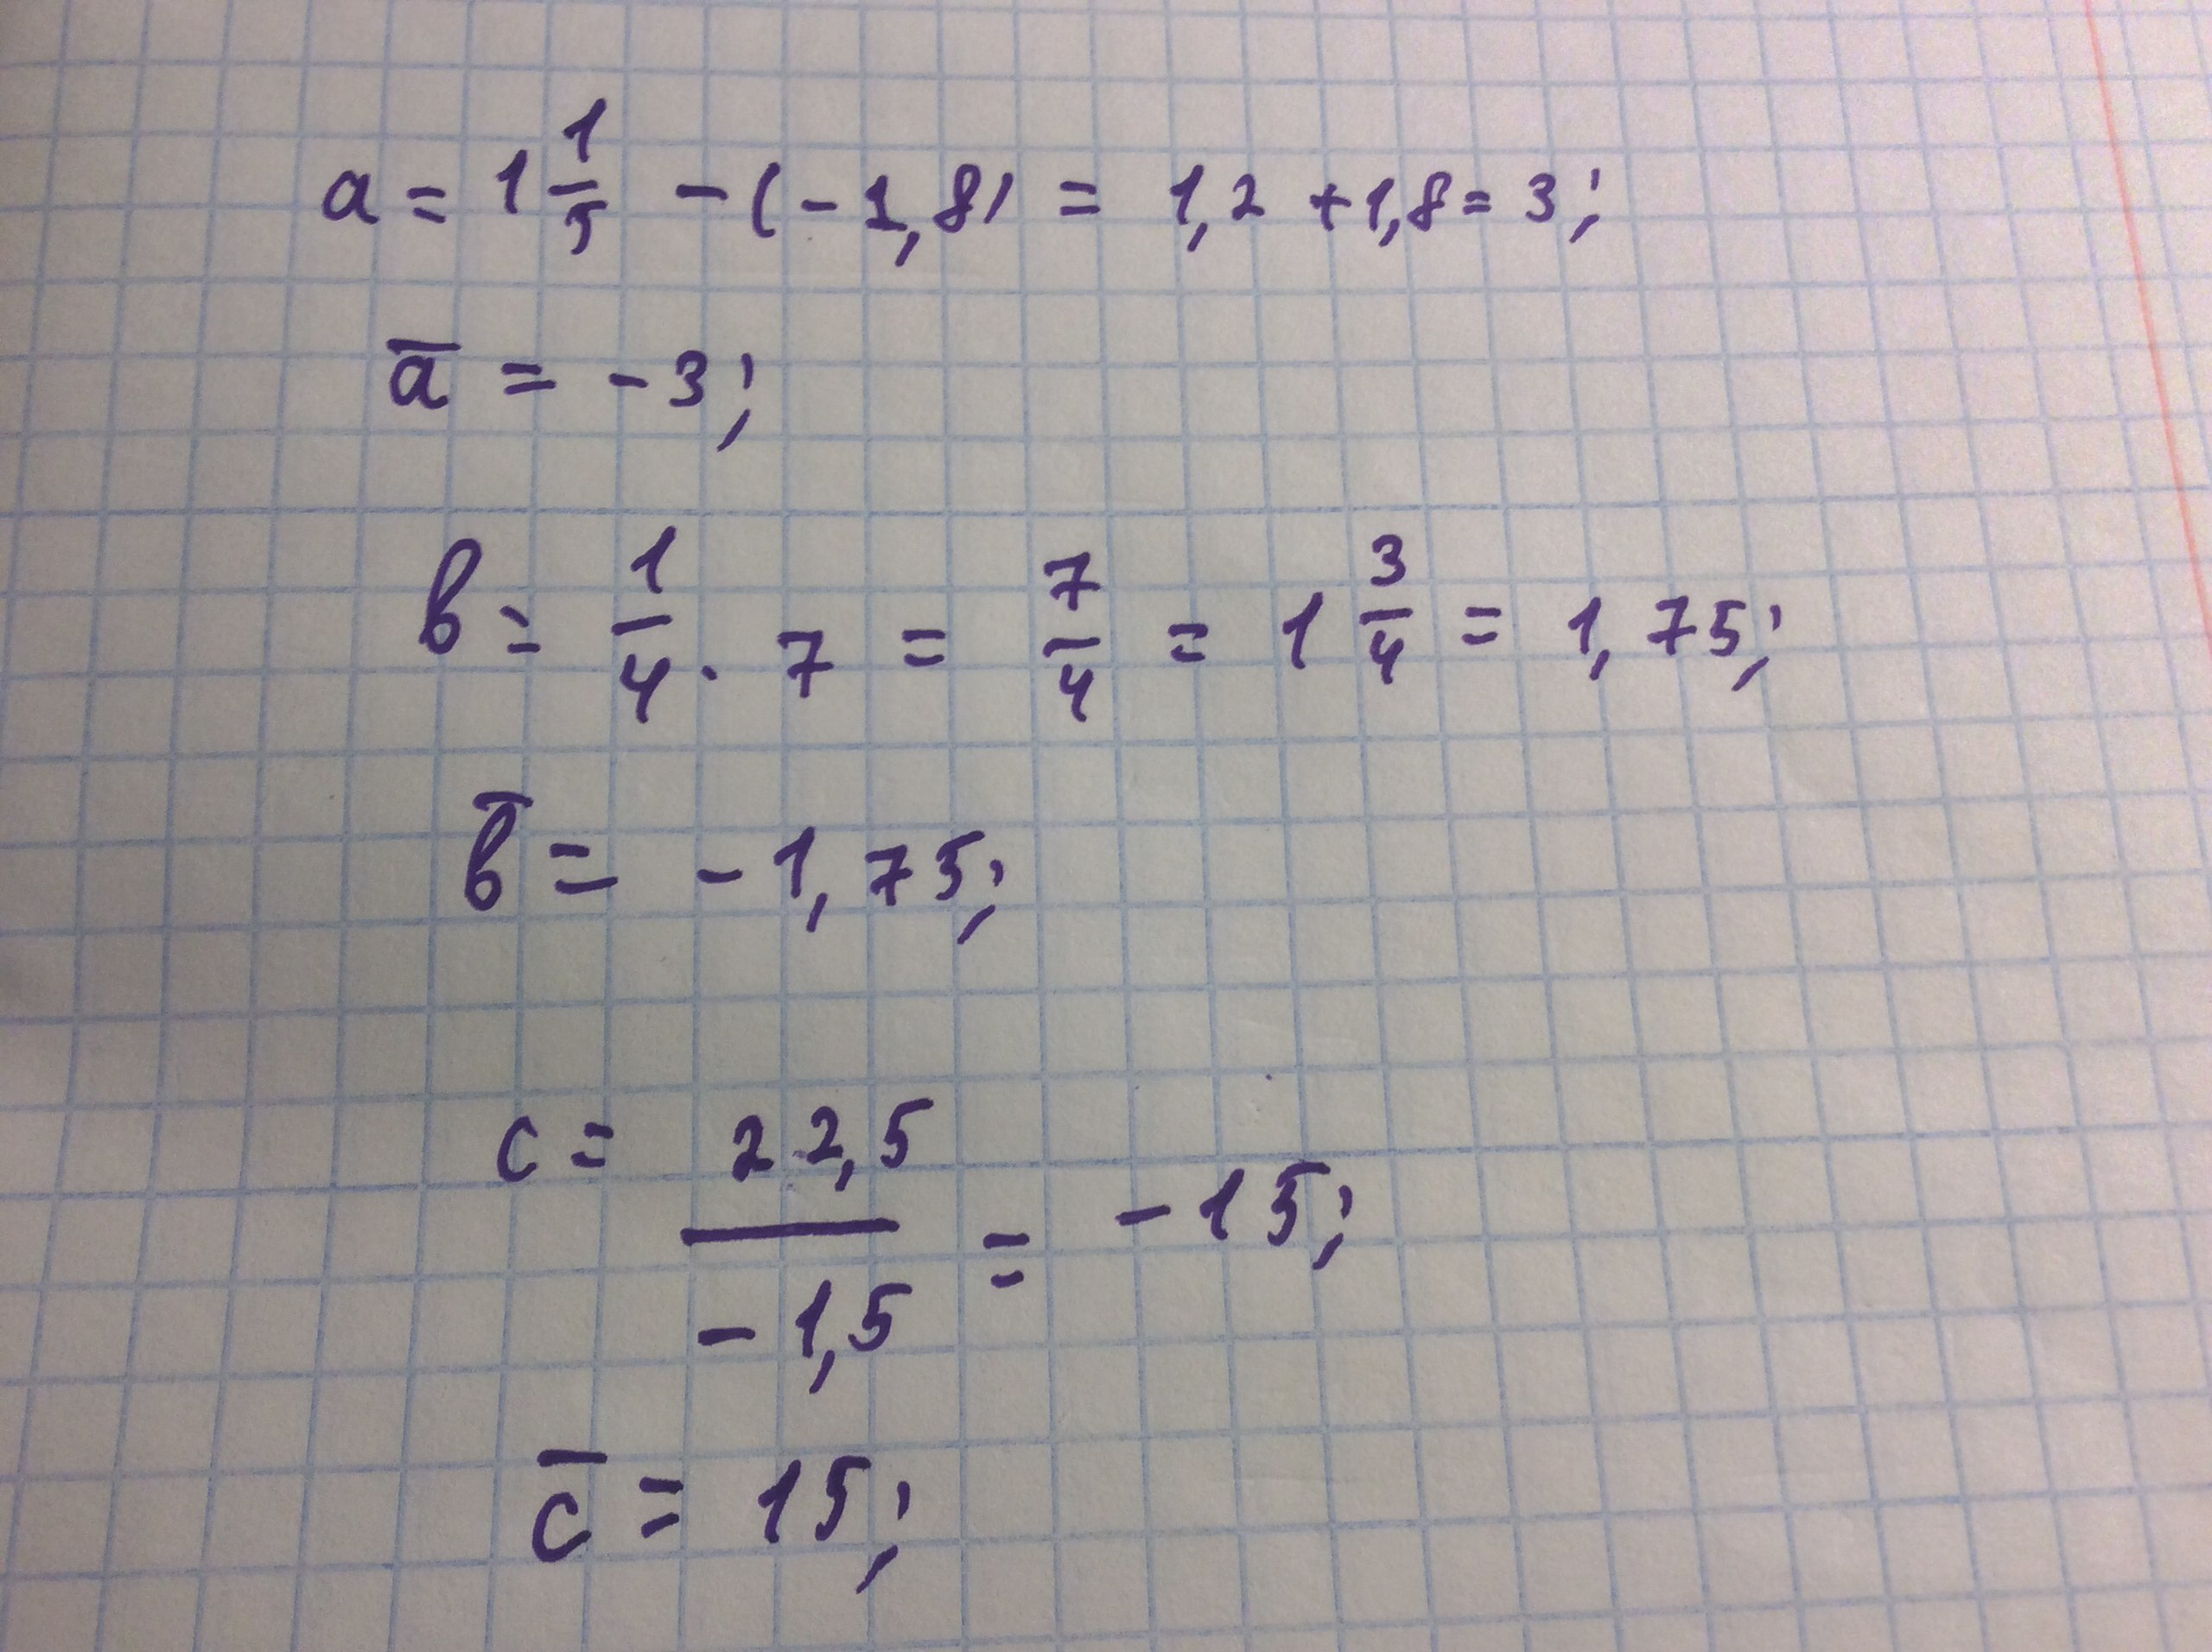 a = 1 1/5 - (-1,8) = 1,2 + 1,8 = 3;
a̅ = -3;
в = 1/4 · 7 = 7/4 = 1 3/4 = 1,75;
в̅ = -1,75;
c = 22,5/-1,5 = -15;
c̅ = 15;